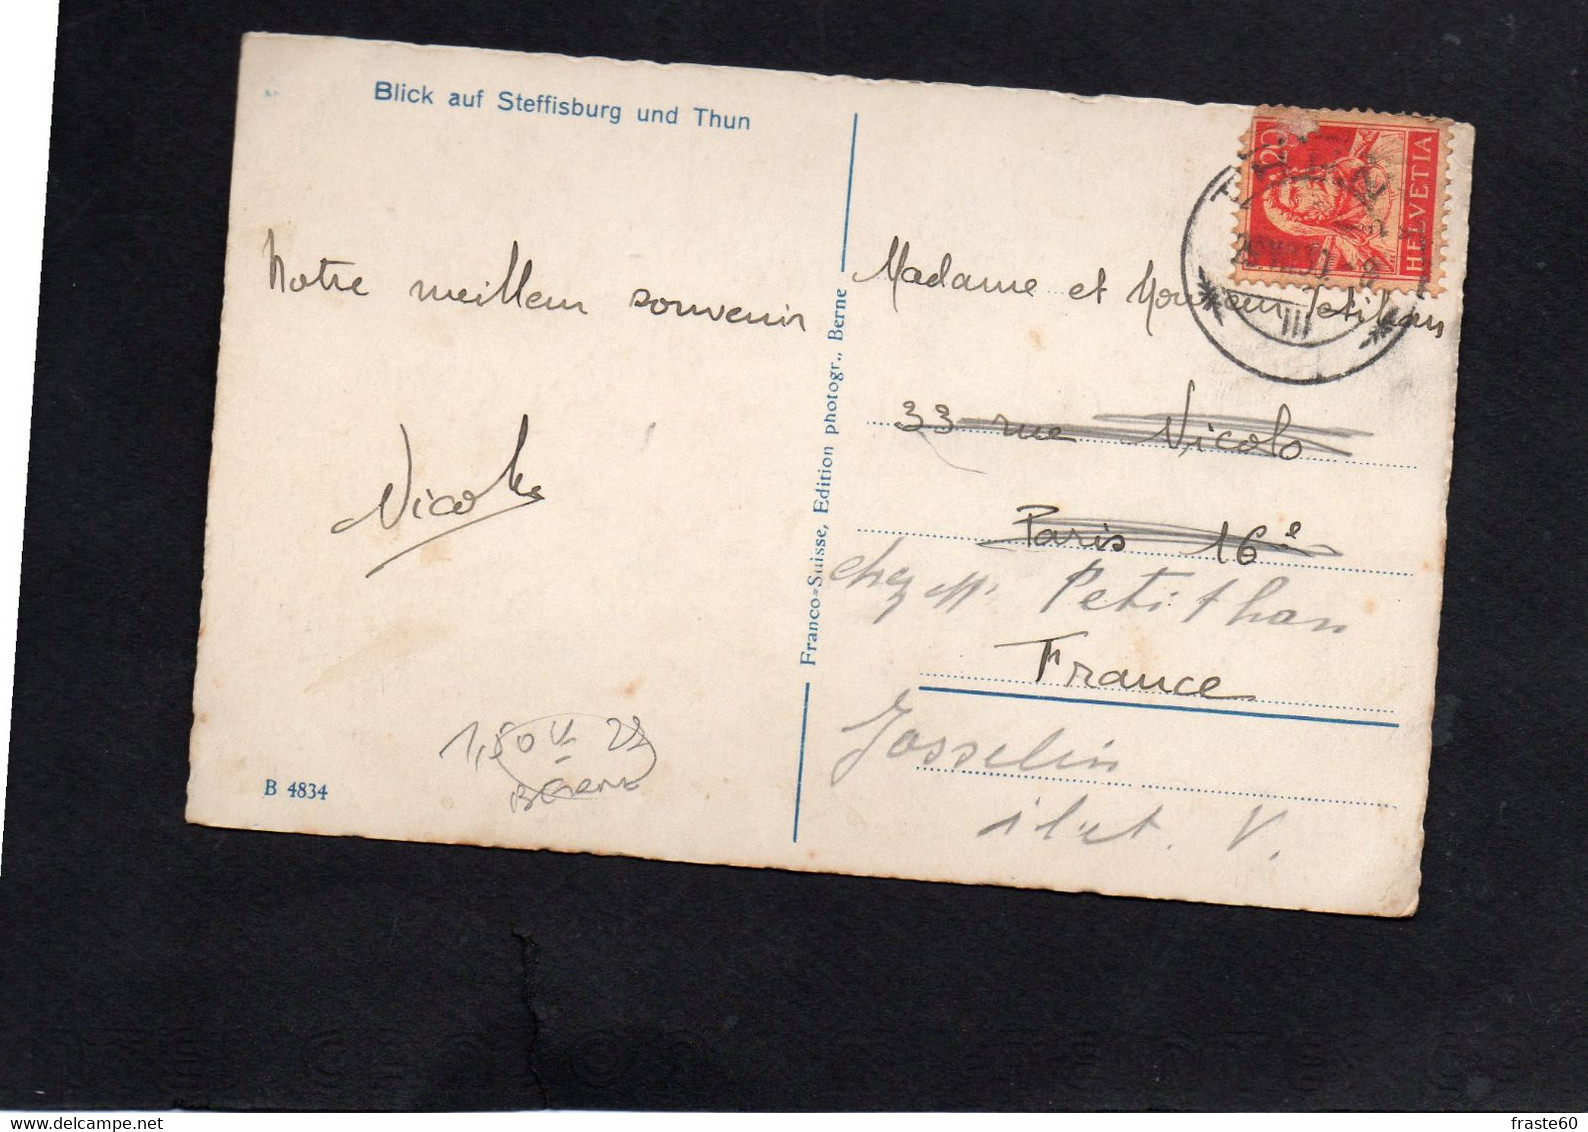 Blick auf Steffisburg und Thun
Notre meilleur souvenir
Nicole
B 4834
Franco-Suisse, Edition photogr., Berne
20
HELVETIA
III
Madame et Monsieur Petithan
33 rue Nicolo
Paris 16e
chez Petithan
France
Josselin
V.
1,50
fraste60